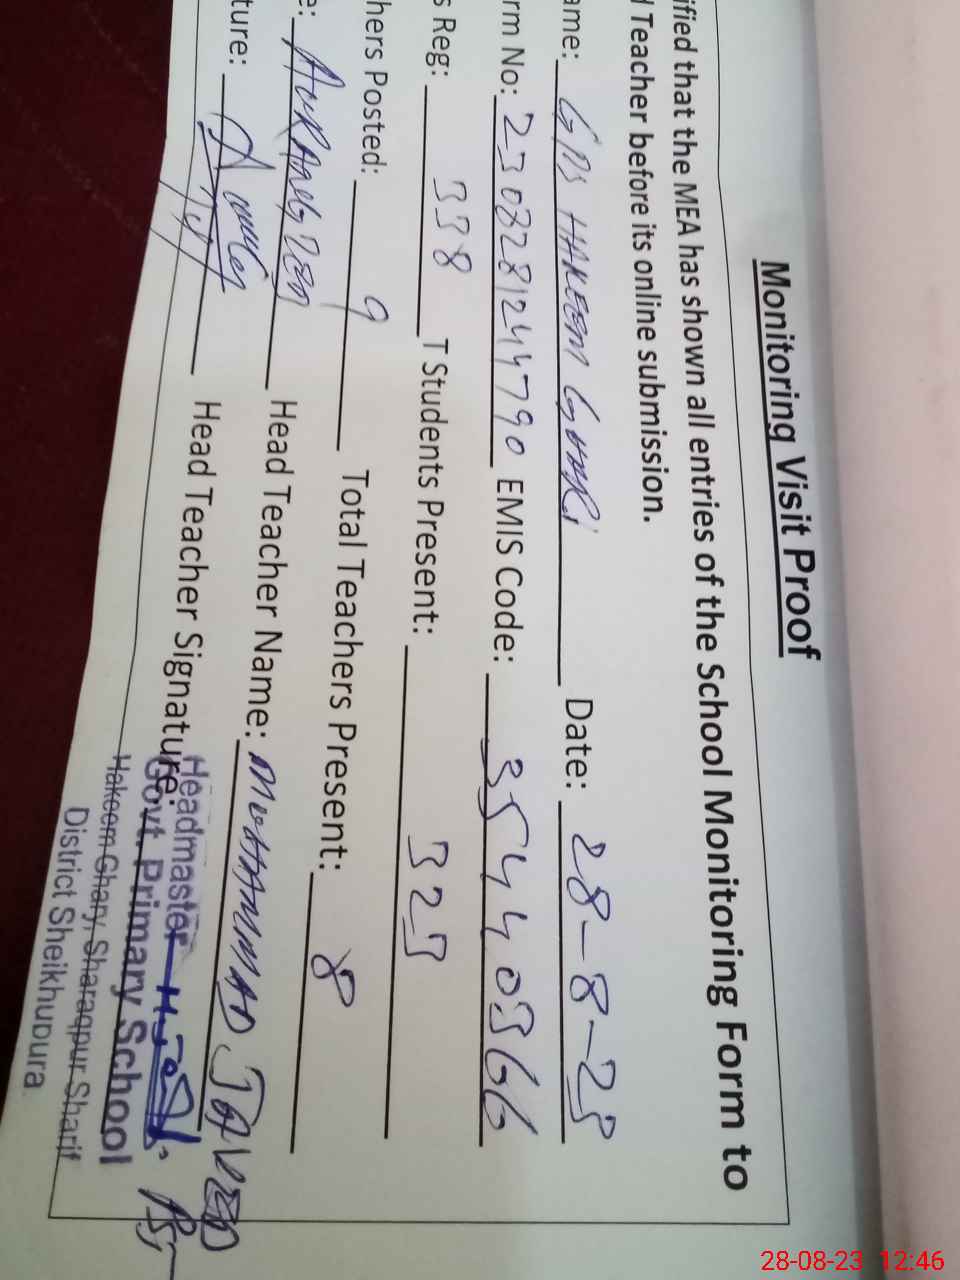 Monitoring Visit Proof
ified that the MEA has shown all entries of the School Monitoring Form to
d Teacher before its online submission.
ame: GPS HAKEEM GHARI Date: 28-8-23
rm No: 2308281244790 EMIS Code: 35440366
s Reg: 338 T Students Present: 323
hers Posted: 9 Total Teachers Present: 8
e: AURANGZEB Head Teacher Name: MUHAMMAD JAVED
ture: Head Teacher Signature:
Headmaster
Govt. Primary School
Hakeem Ghary, Sharaqpur Sharif
District Sheikhupura
28-08-23 12:46